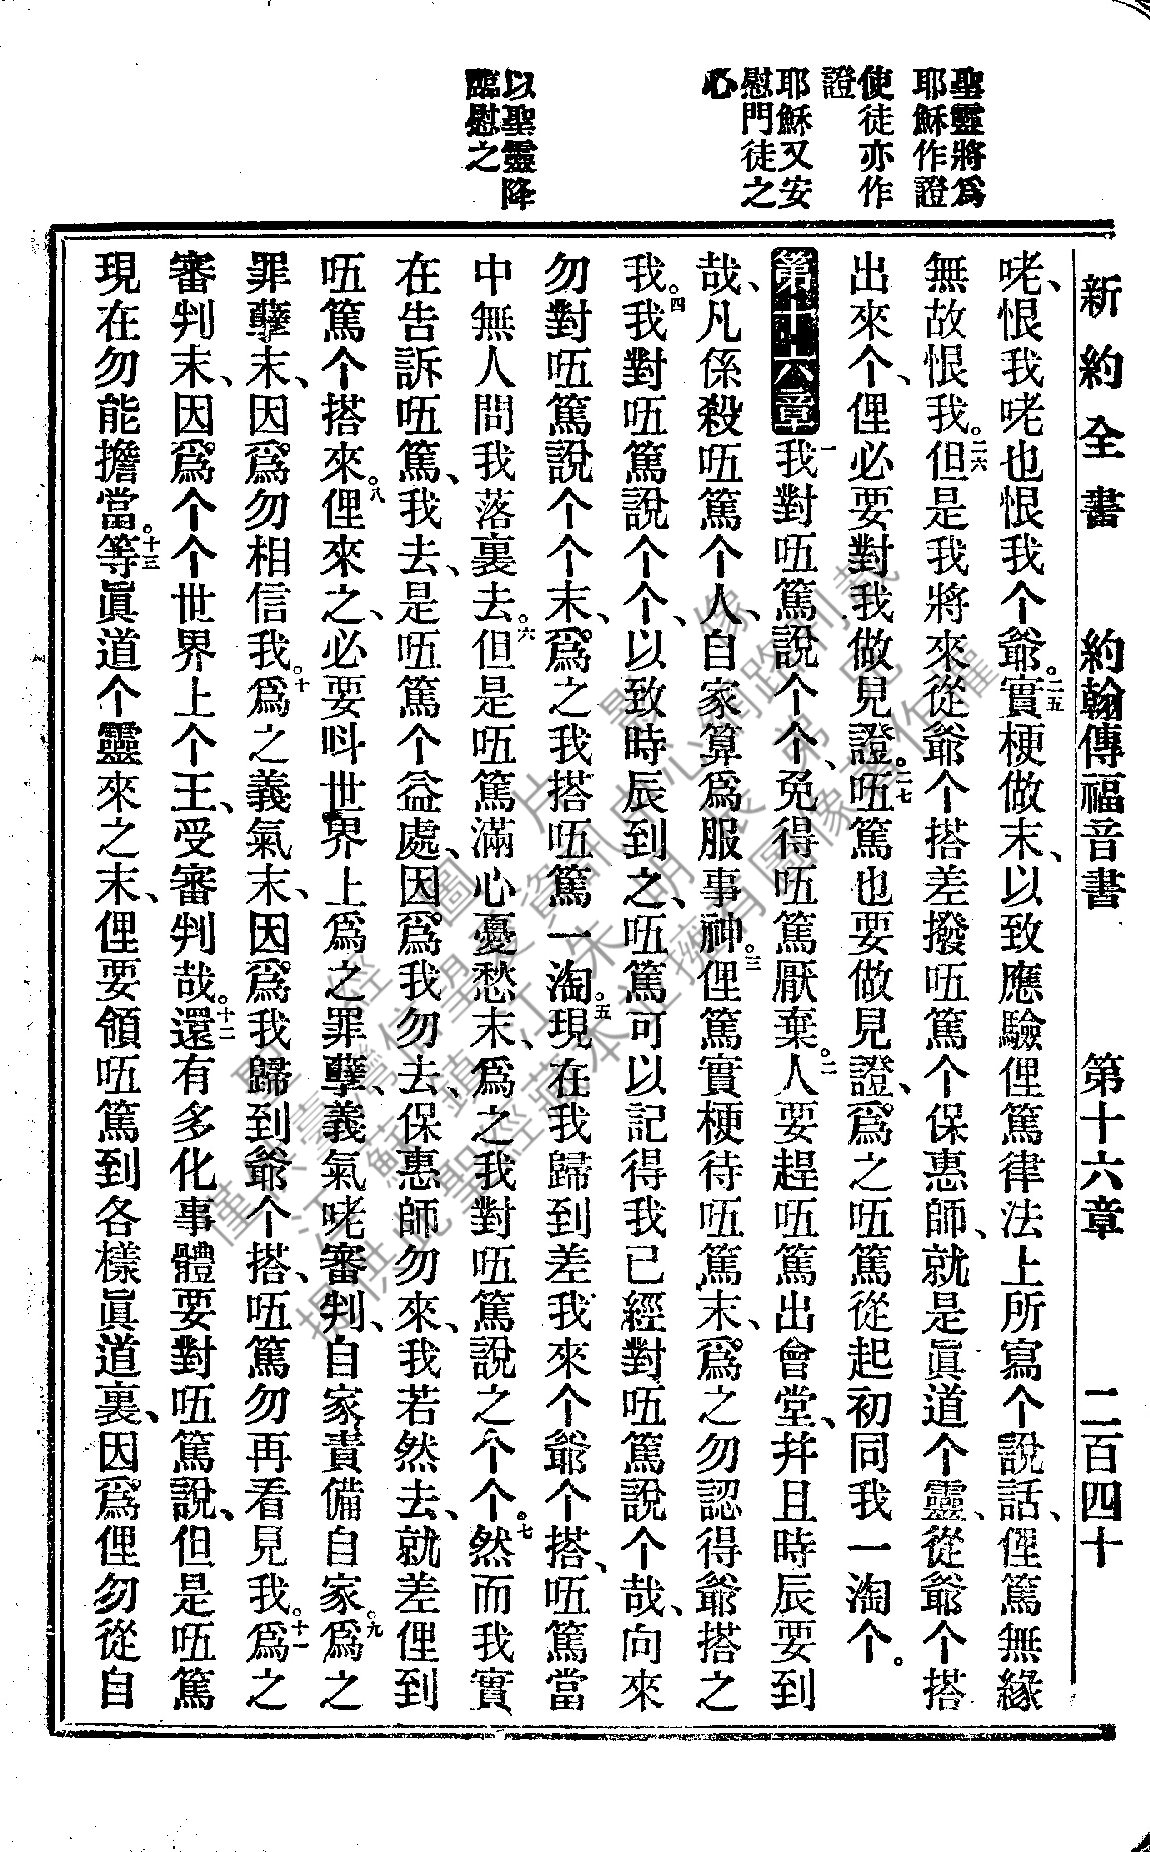 新約全書 約翰傳福音書 第十六章 二百四十
聖靈將爲
耶穌作證
使徒亦作
證
耶穌又安
慰門徒之
心
以聖靈降
臨慰之
咾、恨我咾也恨我个爺。二五實梗做末、以致應驗俚篤律法上所寫个說話、俚篤無緣
無故恨我。二六但是我將來從爺个搭差撥㕶篤个保惠師、就是眞道个靈、從爺个搭
出來个、俚必要對我做見證。二七㕶篤也要做見證、爲之㕶篤從起初同我一淘个。
第十六章 一我對㕶篤說个个、免得㕶篤厭棄。二人要趕㕶篤出會堂、幷且時辰要到
哉、凡係殺㕶篤个人、自家算爲服事神。三俚篤實梗待㕶篤末、爲之勿認得爺搭之
我。四我對㕶篤說个个、以致時辰到之、㕶篤可以記得我已經對㕶篤說个哉、向來
勿對㕶篤說个个末、爲之我搭㕶篤一淘。五現在我歸到差我來个爺个搭、㕶篤當
中無人問我落裏去。六但是㕶篤滿心憂愁末、爲之我對㕶篤說之个个。七然而我實
在告訴㕶篤、我去、是㕶篤个益處、因爲我勿去、保惠師勿來、我若然去、就差俚到
㕶篤个搭來。八俚來之、必要呌世界上爲之罪孽、義氣咾審判、自家責備自家。九爲之
罪孽末、因爲勿相信我。十爲之義氣末、因爲我歸到爺个搭、㕶篤勿再看見我。十一爲之
審判末、因爲个个世界上个王、受審判哉。十二還有多化事體要對㕶篤說、但是㕶篤
現在勿能擔當。十三等眞道个靈來之末、俚要領㕶篤到各樣眞道裏、因爲俚勿從自